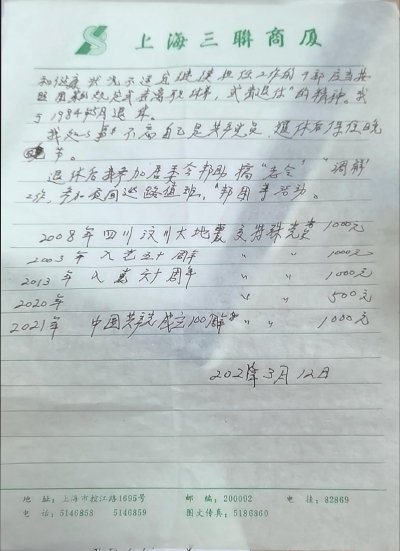 上海三聯商厦
和健康状况不适宜继续担任工作的干部应当其
退离职
于1984年5月退休。
不忘自己是共产党员 退休后保住晚
节。
退休后我参加居委会帮助搞"老令" 调解
工作,参加夜间巡路值班,"邦困等活动。
2008年四川汶川大地震交特殊党费1000元
2003年入党五十周年 〃 〃 1000元
2013年入党六十周年 〃 〃 1000元
2020年 〃 〃 500元
2021年 中国共产党成立100周年 〃 〃 1000元
2021年3月12日
地 址:上海市控江路1695号 邮 编:200092 电 挂:82869
电 话:5146858 5146859 图文传真:5186860